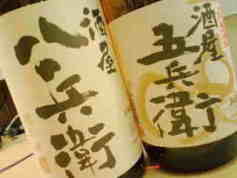 酒屋
八兵衛
酒屋
五兵衛